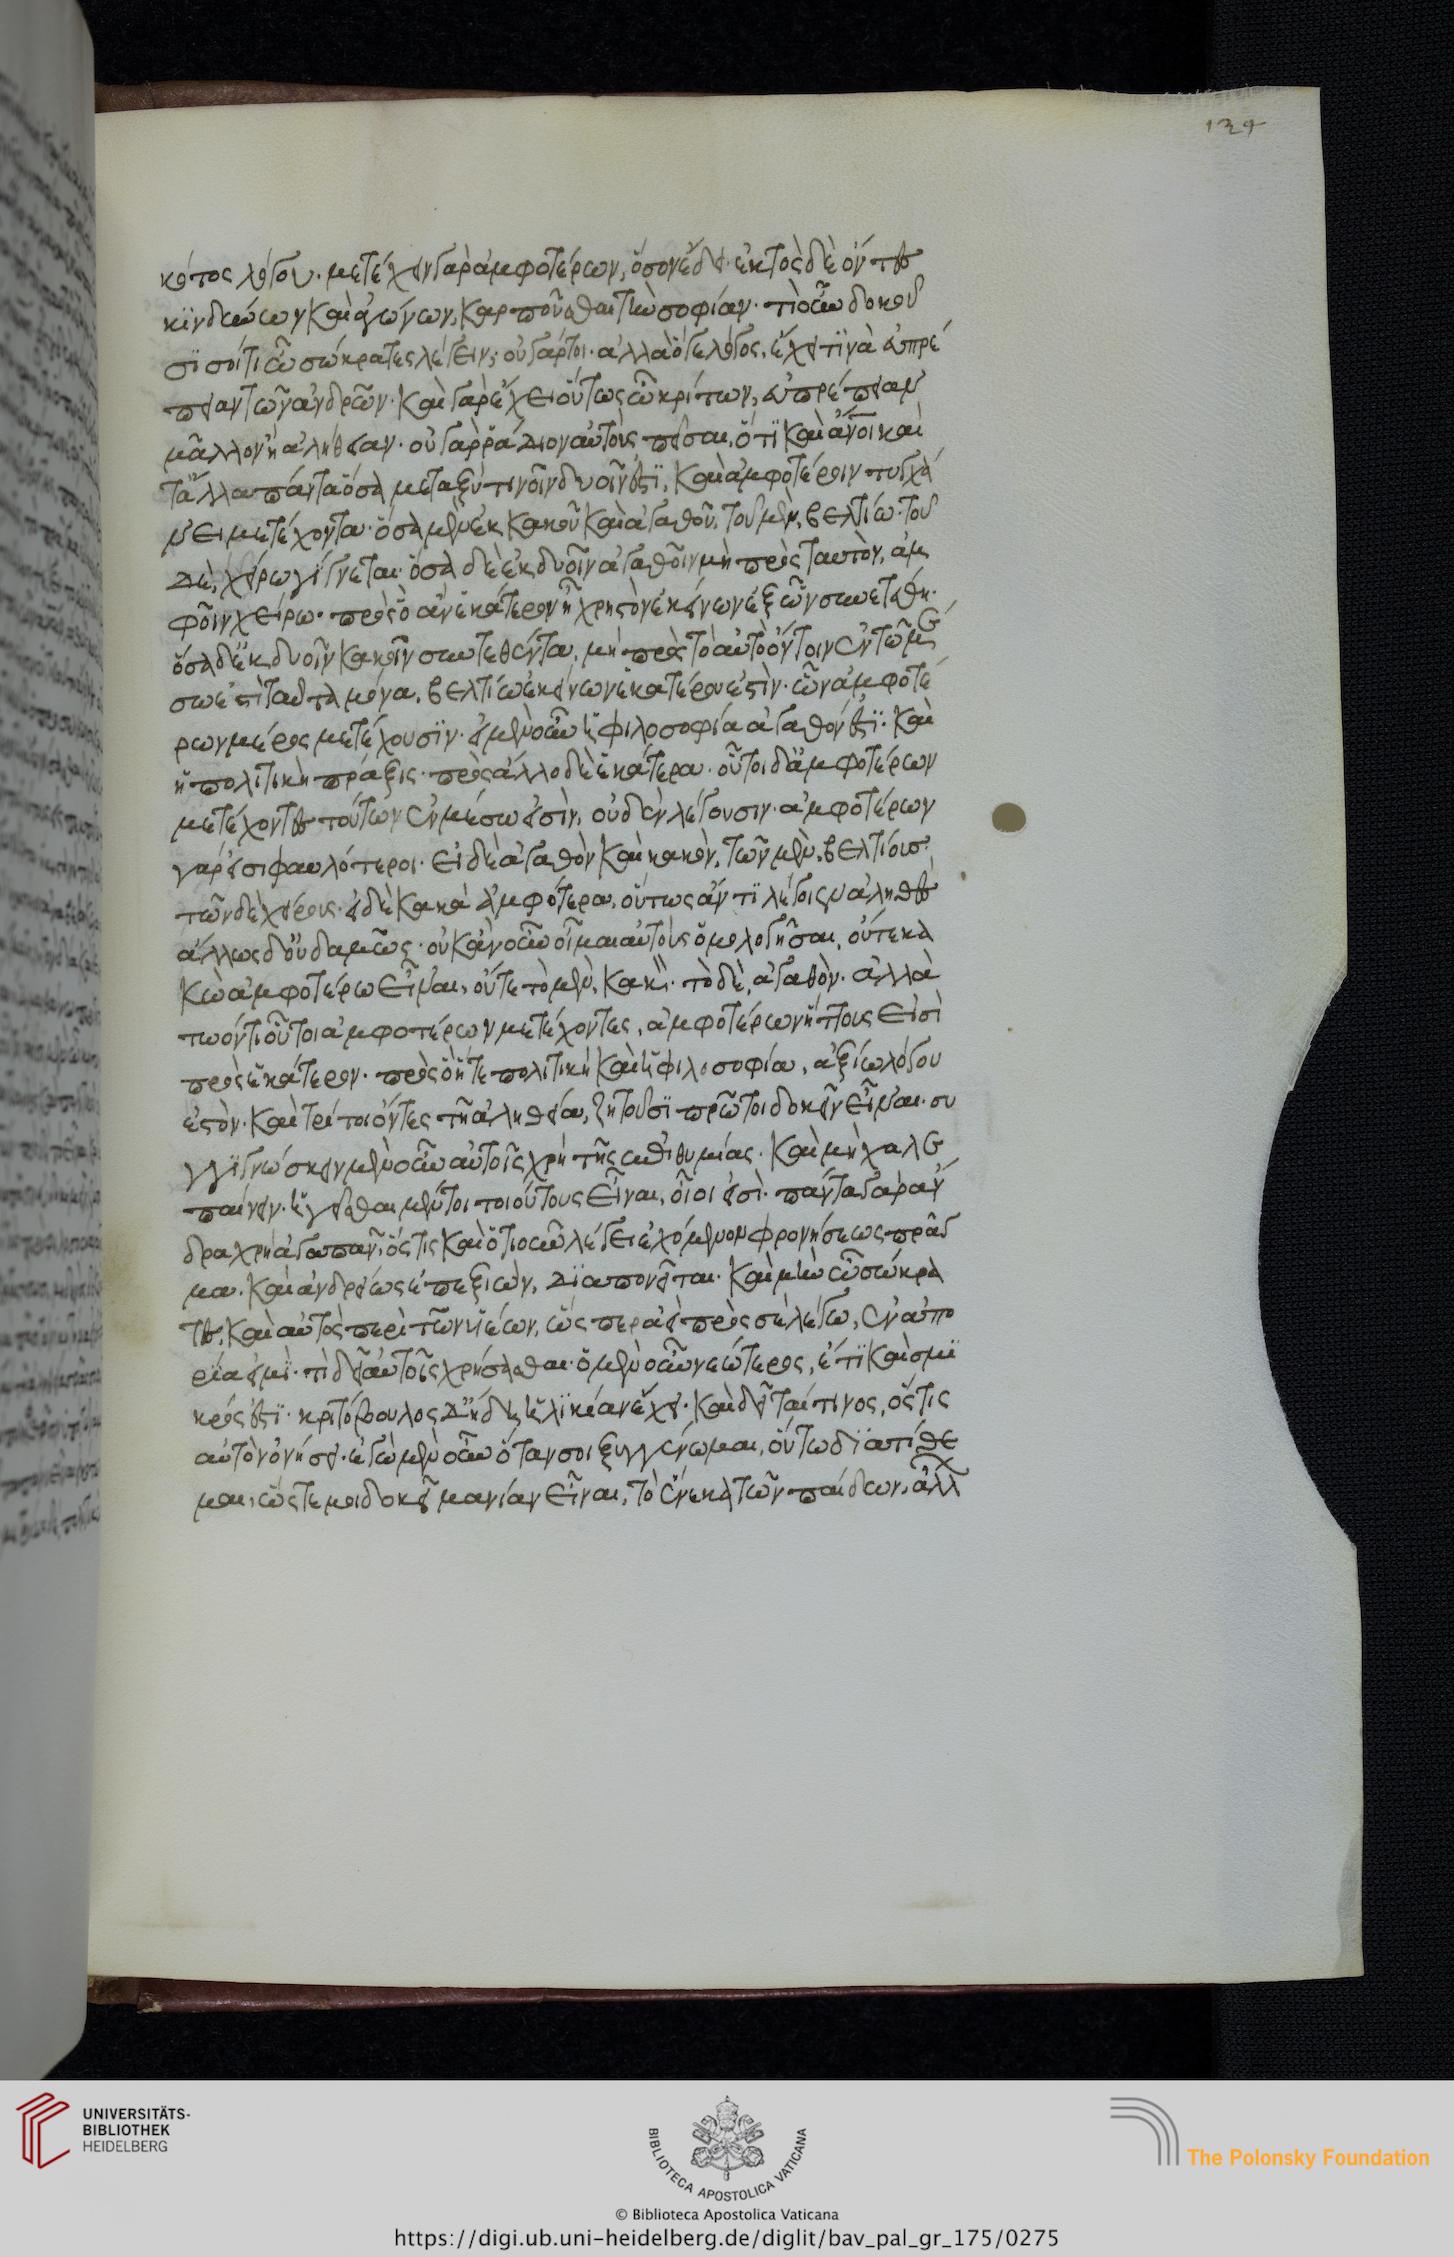 134
κότος λόγου. μετέχειν γὰρ ἀμφοτέρων, ὅσον ἔδει. ἐκτὸς δὲ ὄντες
κινδύνων καὶ ἀγώνων, καρποῦσθαι τὴν σοφίαν. τί οὖν δοκοῦ
σί σοί τι ὦ σώκρατες λέγειν; οὐ γάρ τοι. ἀλλὰ ὅ γε λόγος, ἔχει τινὰ εὐπρέ
πειαν τῶν ἀνδρῶν. καὶ γὰρ ἔχει οὕτως ὦ κρίτων, εὐπρέπειαν
μᾶλλον ἢ ἀλήθειαν. οὐ γὰρ ῥάδιον αὐτοὺς πεῖσαι, ὅτι καὶ ἄνοι καὶ
τἄλλα πάντα ὅσα μεταξύ τινοιν δυοῖν ἐστι, καὶ ἀμφοτέροιν τυγχά
νει μετέχοντα. ὅσα μὲν ἐκ κακοῦ καὶ ἀγαθοῦ, τοῦ μὲν, βελτίω. τοῦ
δὲ, χείρω γίγνεται. ὅσα δὲ ἐκ δυοῖν ἀγαθοῖν μὴ πρὸς ταυτὸν, ἀμ
φοῖν χείρω. πρὸς ὃ ἂν ἑκάτερον ᾖ χρηστὸν ἐκείνων ἐξ ὧν συνετέθη.
ὅσα δ' ἐκ δυοῖν κακοῖν συντεθέντα, μὴ πρὸς τὸ αὐτὸ ὄντοιν ἐν τῷ μέ
σῳ ἐστὶ ταῦτα μόνα, βελτίω ἐκείνων ἑκατέρου ἐστὶν. ὧν ἀμφοτέ
ρων μέρος μετέχουσιν. εἰ μὲν οὖν ἡ φιλοσοφία ἀγαθόν ἐστι. καὶ
ἡ πολιτικὴ πρᾶξις. πρὸς ἄλλο δὲ ἑκάτερα. οὗτοι δ' ἀμφοτέρων
μετέχοντες τούτων ἐν μέσῳ εἰσὶν, οὐδὲν λέγουσιν. ἀμφοτέρων
γάρ εἰσι φαυλότεροι. εἰ δὲ ἀγαθὸν καὶ κακὸν, τῶν μὲν, βελτίους.
τῶν δὲ χείρους. εἰ δὲ κακὰ ἀμφότερα, οὕτως ἄν τι λέγοιεν ἀληθὲς
ἄλλως δ' οὐδαμῶς. οὐκ ἂν οὖν οἶμαι αὐτοὺς ὁμολογῆσαι, οὔτε κα
κὼ ἀμφοτέρω εἶναι, οὔτε τὸ μὲν, κακὸν. τὸ δὲ, ἀγαθὸν. ἀλλὰ
τῷ ὄντι οὗτοι ἀμφοτέρων μετέχοντες, ἀμφοτέρων ἥττους εἰσὶ
πρὸς ἑκάτερον. πρὸς ὃ ἥ τε πολιτικὴ καὶ ἡ φιλοσοφία, ἀξίω λόγου
ἐστὸν. καὶ τρίτοι ὄντες τῇ ἀληθείᾳ, ζητοῦσι πρῶτοι δοκεῖν εἶναι. συ
γγιγνώσκειν μὲν οὖν αὐτοῖς χρὴ τῆς ἐπιθυμίας. καὶ μὴ χαλε
παίνειν. ἡγεῖσθαι μέντοι τοιούτους εἶναι, οἷοι εἰσὶ. πάντα γὰρ ἄν
δρα χρὴ ἀγαπᾶν, ὅστις καὶ ὁτιοῦν λέγει ἐχόμενον φρονήσεως πρᾶγ
μα. καὶ ἀνδρείως ἐπεξιὼν, διαπονεῖται. καὶ μὴν ὦ σώκρα
τες, καὶ αὐτὸς περὶ τῶν υἱέων, ὥσπερ ἀεὶ πρὸς σὲ λέγω, ἐν ἀπο
ρίᾳ εἰμὶ. τί δεῖ αὐτοῖς χρήσασθαι. ὁ μὲν οὖν νεώτερος, ἔτι καὶ σμι
κρός ἐστι. κριτόβουλος δ' ἤδη ἡλικίαν ἔχει. καὶ δεῖταί τινος, ὅστις
αὐτὸν ὀνήσει. ἐγὼ μὲν οὖν ὅταν σοι ξυγγένωμαι, οὕτω διατίθε
μαι, ὥστε μοι δοκεῖ μανίαν εἶναι, τὸ ἕνεκα τῶν παίδων, ἄλλ
UNIVERSITÄTS-
BIBLIOTHEK
HEIDELBERG
BIBLIOTECA APOSTOLICA VATICANA
The Polonsky Foundation
© Biblioteca Apostolica Vaticana
https://digi.ub.uni-heidelberg.de/diglit/bav_pal_gr_175/0275